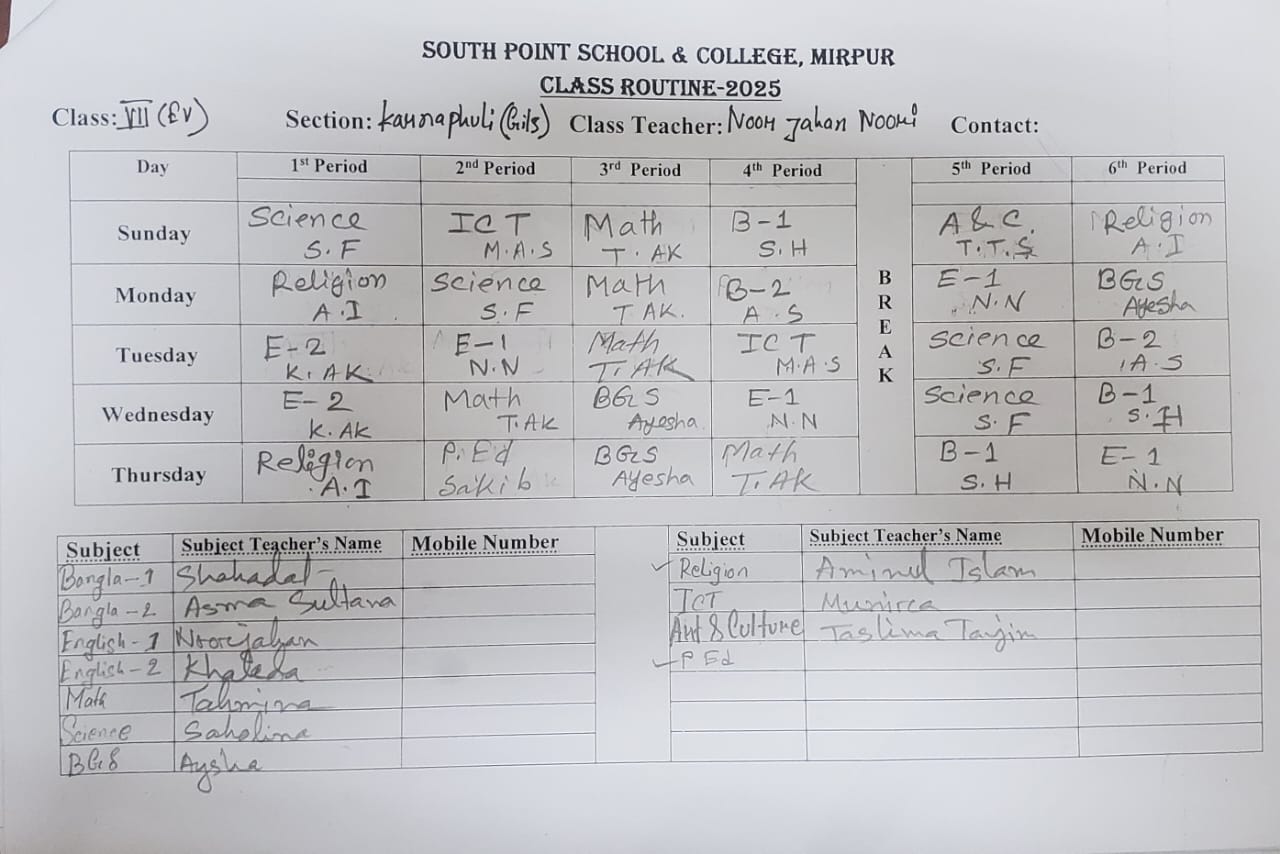 SOUTH POINT SCHOOL & COLLEGE, MIRPUR
CLASS ROUTINE-2025
Class: VII (EV) Section: Karnaphuli (Girls) Class Teacher: Noor Jahan Noori Contact:
Day 1st Period 2nd Period 3rd Period 4th Period BREAK 5th Period 6th Period
Sunday Science ICT Math B-1 A & C. Religion
S.F M.A.S T.AK S.H T.T.S A.I
Monday Religion Science Math B-2 E-1 BGS
A.I S.F T AK. A.S N.N Ayesha
Tuesday E-2 E-1 Math ICT Science B-2
K.AK N.N T.AK M.A.S S.F A.S
Wednesday E-2 Math BGS E-1 Science B-1
K.AK T.AK Ayesha N.N S.F S.H
Thursday Religion P.Ed BGS Math B-1 E-1
A.I Sakib Ayesha T.AK S.H N.N
Subject Subject Teacher's Name Mobile Number Subject Subject Teacher's Name Mobile Number
Bangla-1 Shahadat Religion Aminul Islam
Bangla-2 Asma Sultana ICT
English-1 Noorjahan Art & Culture Taslima
English-2 Khaleda P Ed
Math Tahmina
Science Sahelina
BGS Aysha